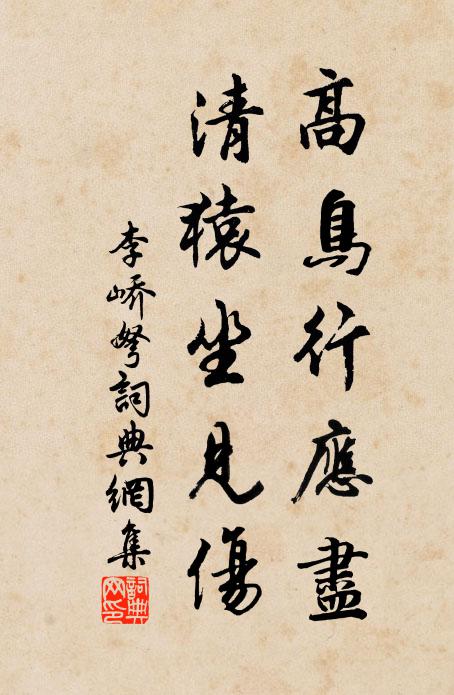 高鳥行應盡
清猿坐見傷
李嶠弩詞典網集
詞典網印